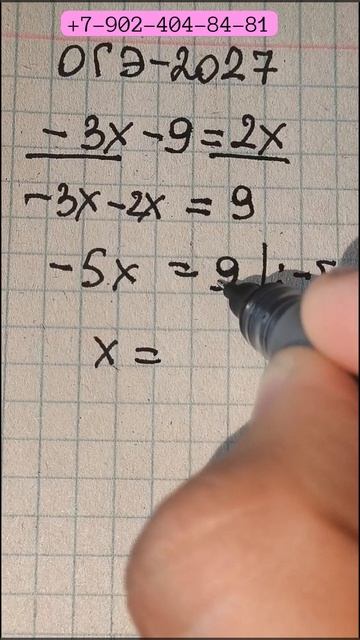 +7-902-404-84-81
ОГЭ-2027
-3x-9=2x
-3x-2x=9
-5x=9|:-5
x=